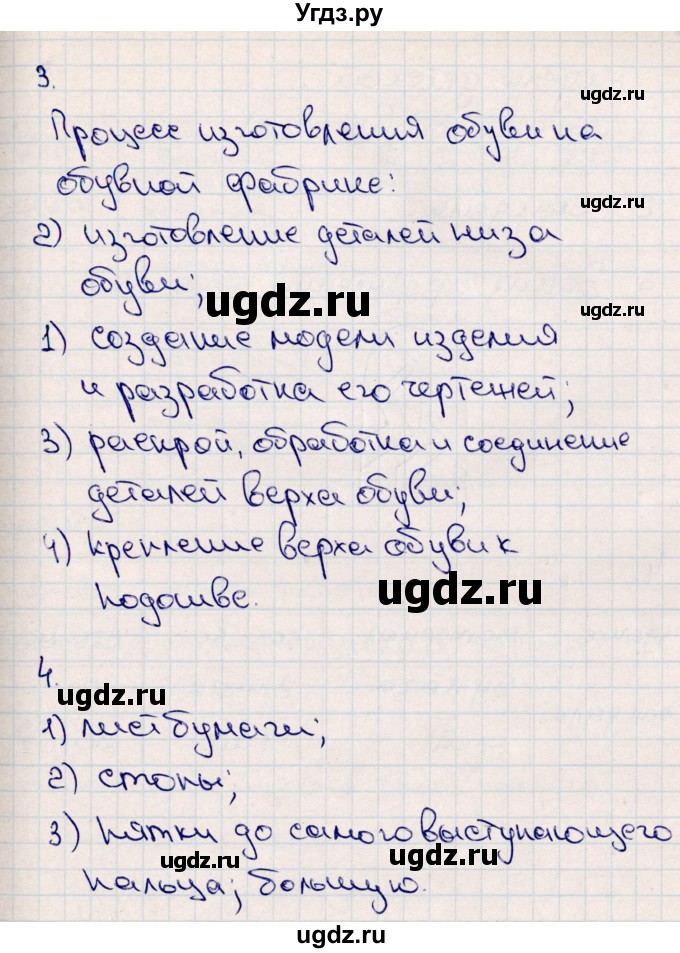 Угдз.ру
3.
ugdz.ru
Процесс изготовления обуви на
ugdz.ru
обувной фабрике:
ugdz.ru
2) изготовление деталей низа
обуви;
ugdz.ru
1) создание модели изделия
и разработка его чертежей;
3) раскрой, обработка и соединение
деталей верха обуви;
4) крепление верха обуви к
подошве.
ugdz.ru
4.
ugdz.ru
1) лист бумаги;
2) стопы;
3) пятки до самого выступающего
ugdz.ru
ugdz.ru
пальца; большую.
ugdz.ru